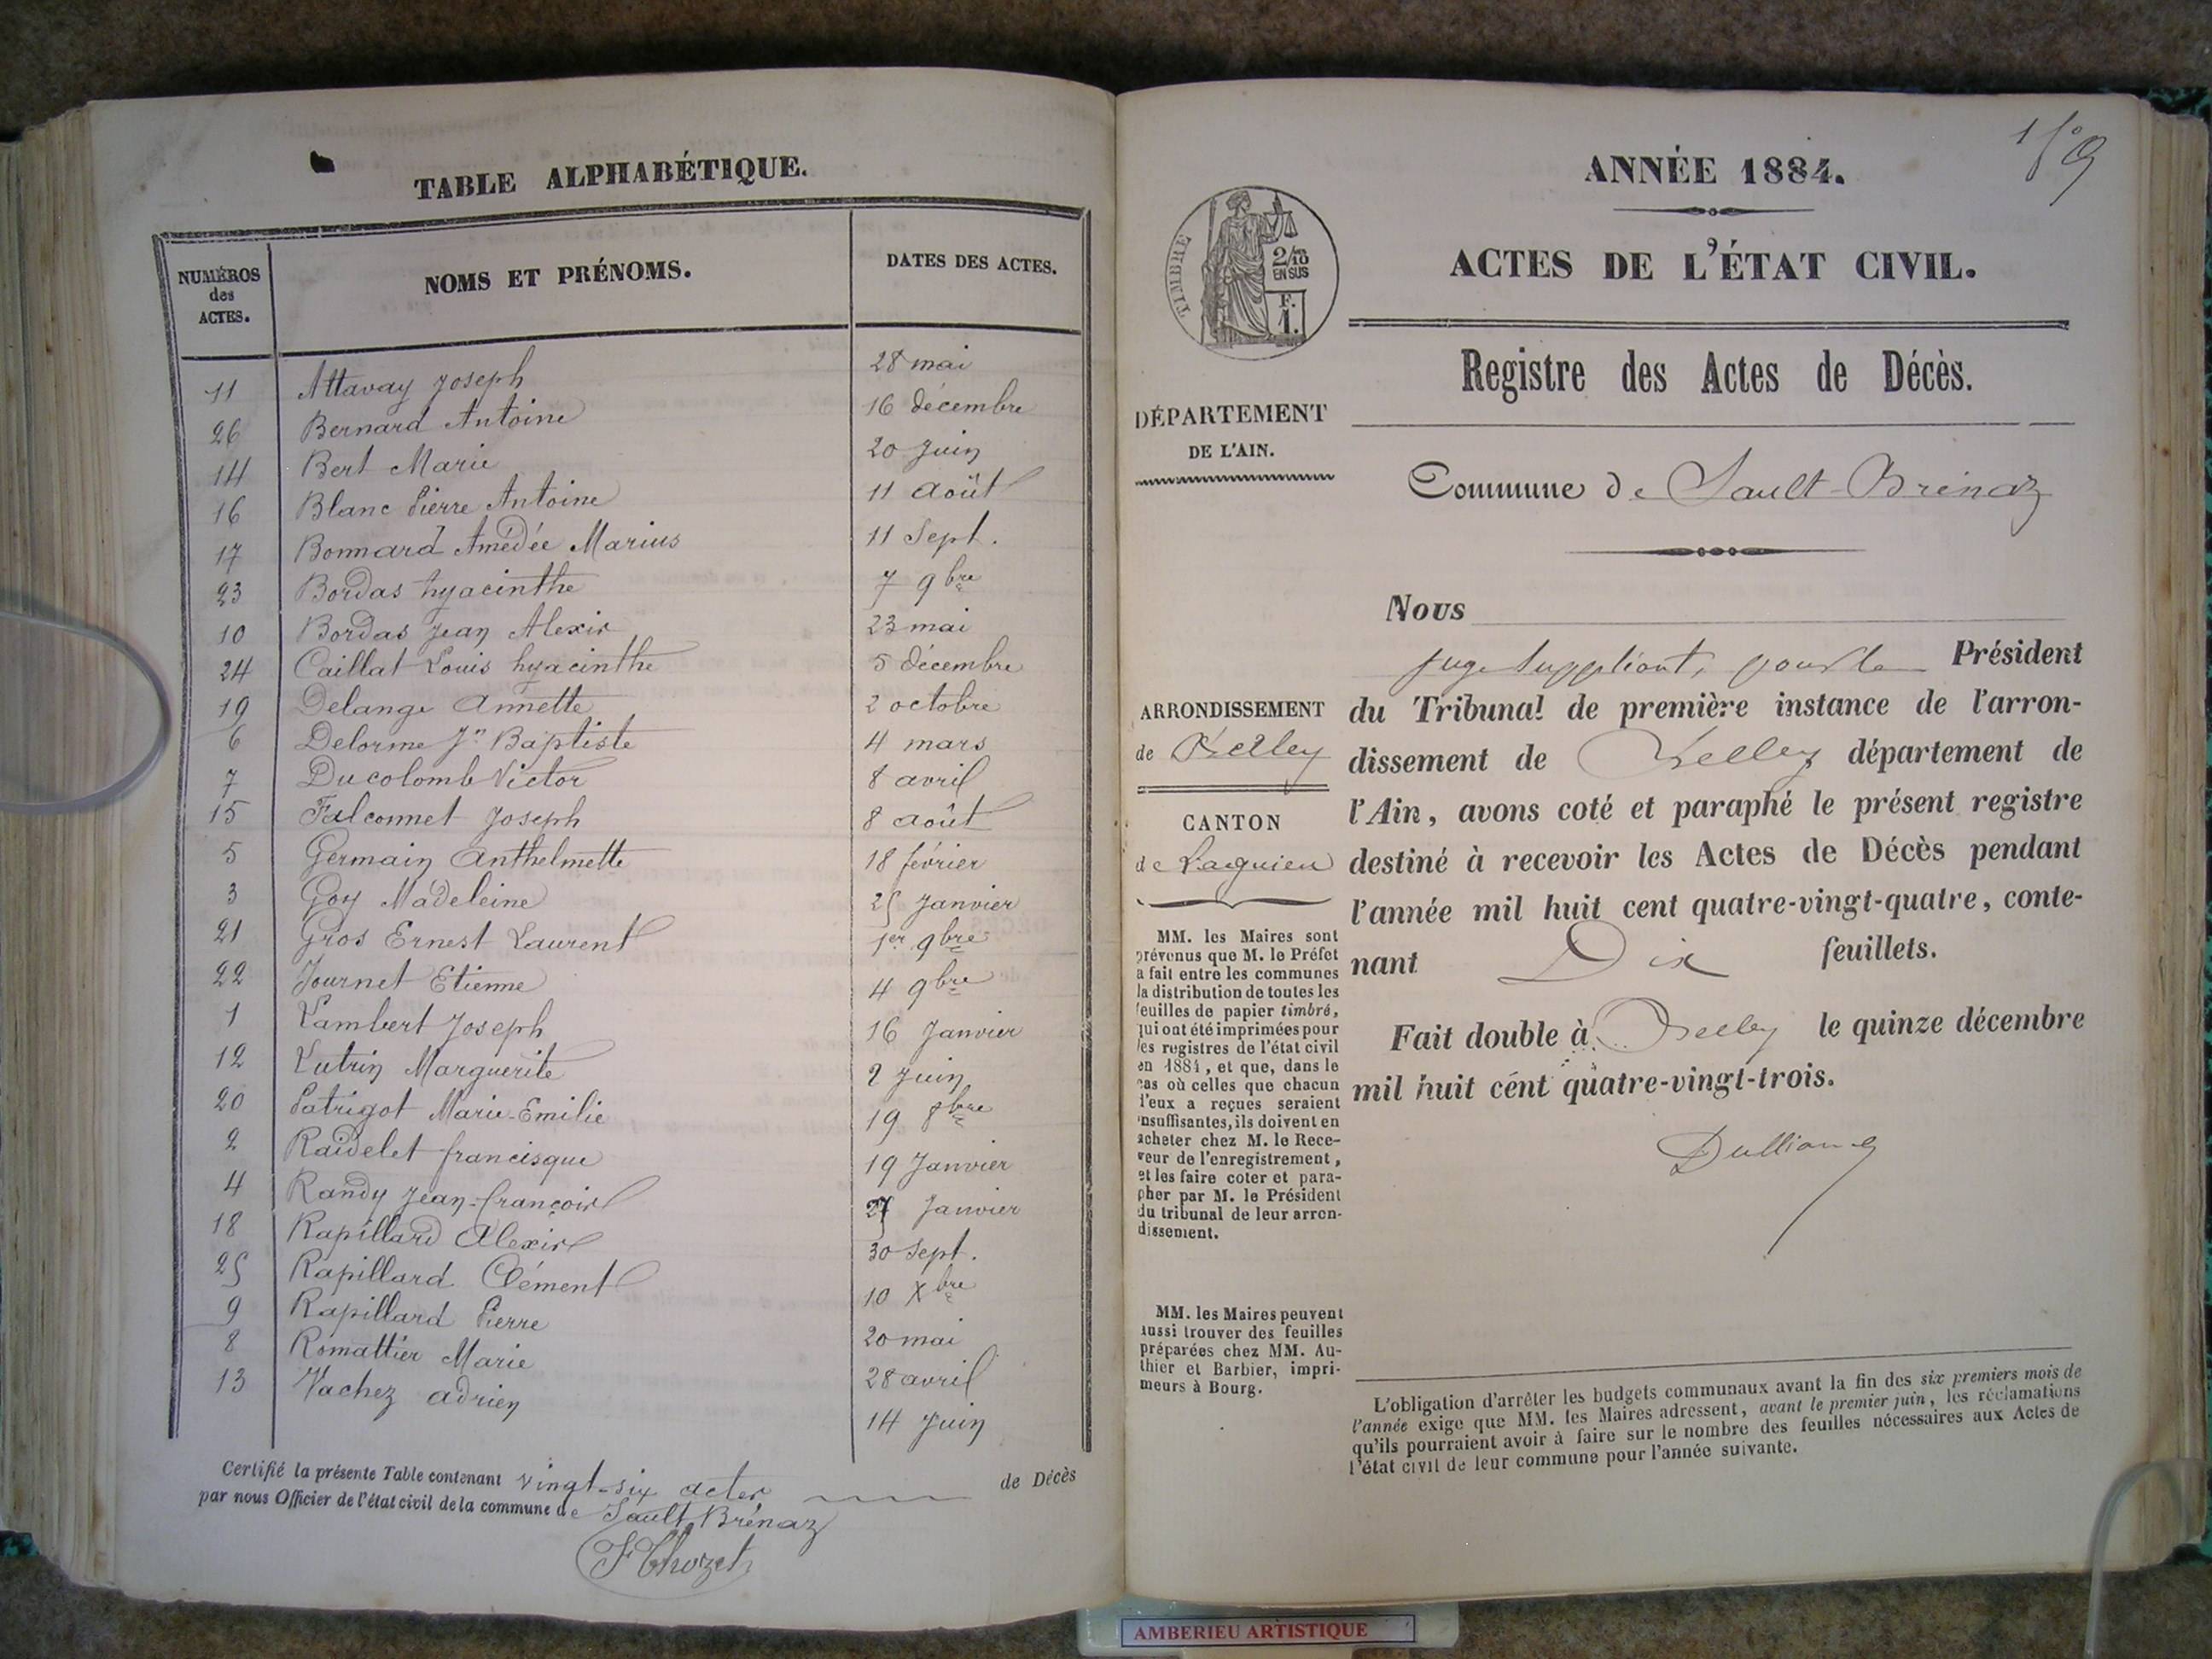 TABLE ALPHABÉTIQUE.
NUMÉROS des ACTES. NOMS ET PRÉNOMS. DATES DES ACTES.
11 Attavay Joseph 28 mai
26 Bernard Antoine 16 décembre
14 Bert Marie 20 Juin
16 Blanc Pierre Antoine 11 août
17 Bonnard Amédée Marius 11 Sept.
23 Bordas hyacinthe 7 9bre
10 Bordas Jean Alexis 23 mai
24 Caillat Louis hyacinthe 5 décembre
19 Delange Annette 2 octobre
6 Delorme Jn Baptiste 4 mars
7 Ducolomb Victor 8 avril
15 Falconnet Joseph 8 août
5 Germain Anthelmette 18 février
3 Goy Madeleine 25 Janvier
21 Gros Ernest Laurent 1er 9bre
22 Journet Etienne 4 9bre
1 Lambert Joseph 16 Janvier
12 Lutrin Marguerite 2 Juin
20 Patrigot Marie-Emilie 19 8bre
2 Raidelet francisque 19 Janvier
4 Randy Jean-françois Janvier
18 Rapillard Alexis 30 Sept.
25 Rapillard Clément 10 Xbre
9 Rapillard Pierre 20 mai
8 Romattier Marie 28 avril
13 Vachez adrien 14 Juin
Certifié la présente Table contenant vingt-six actes de Décès
par nous Officier de l'état civil de la commune de Sault Brénaz
F Chozet
159
ANNÉE 1884.
ACTES DE L'ÉTAT CIVIL.
TIMBRE
2/10
EN SUS
F.
1.
Registre des Actes de Décès.
DÉPARTEMENT
DE L'AIN.
Commune de Sault-Brénaz
Nous
juge suppléant, pour le Président
du Tribunal de première instance de l'arron-
dissement de Belley département de
l'Ain, avons coté et paraphé le présent registre
destiné à recevoir les Actes de Décès pendant
l'année mil huit cent quatre-vingt-quatre, conte-
nant Dix feuillets.
Fait double à Belley le quinze décembre
mil huit cent quatre-vingt-trois.
ARRONDISSEMENT
de Belley
CANTON
de Lagnieu
MM. les Maires sont
prévenus que M. le Préfet
a fait entre les communes
la distribution de toutes les
feuilles de papier timbré,
qui ont été imprimées pour
les registres de l'état civil
en 1884, et que, dans le
cas où celles que chacun
d'eux a reçues seraient
insuffisantes, ils doivent en
acheter chez M. le Rece-
veur de l'enregistrement,
et les faire coter et para-
pher par M. le Président
du tribunal de leur arron-
dissement.
MM. les Maires peuvent
aussi trouver des feuilles
préparées chez MM. Au-
thier et Barbier, impri-
meurs à Bourg.
L'obligation d'arrêter les budgets communaux avant la fin des six premiers mois de
l'année exige que MM. les Maires adressent, avant le premier juin, les réclamations
qu'ils pourraient avoir à faire sur le nombre des feuilles nécessaires aux Actes de
l'état civil de leur commune pour l'année suivante.
AMBERIEU ARTISTIQUE